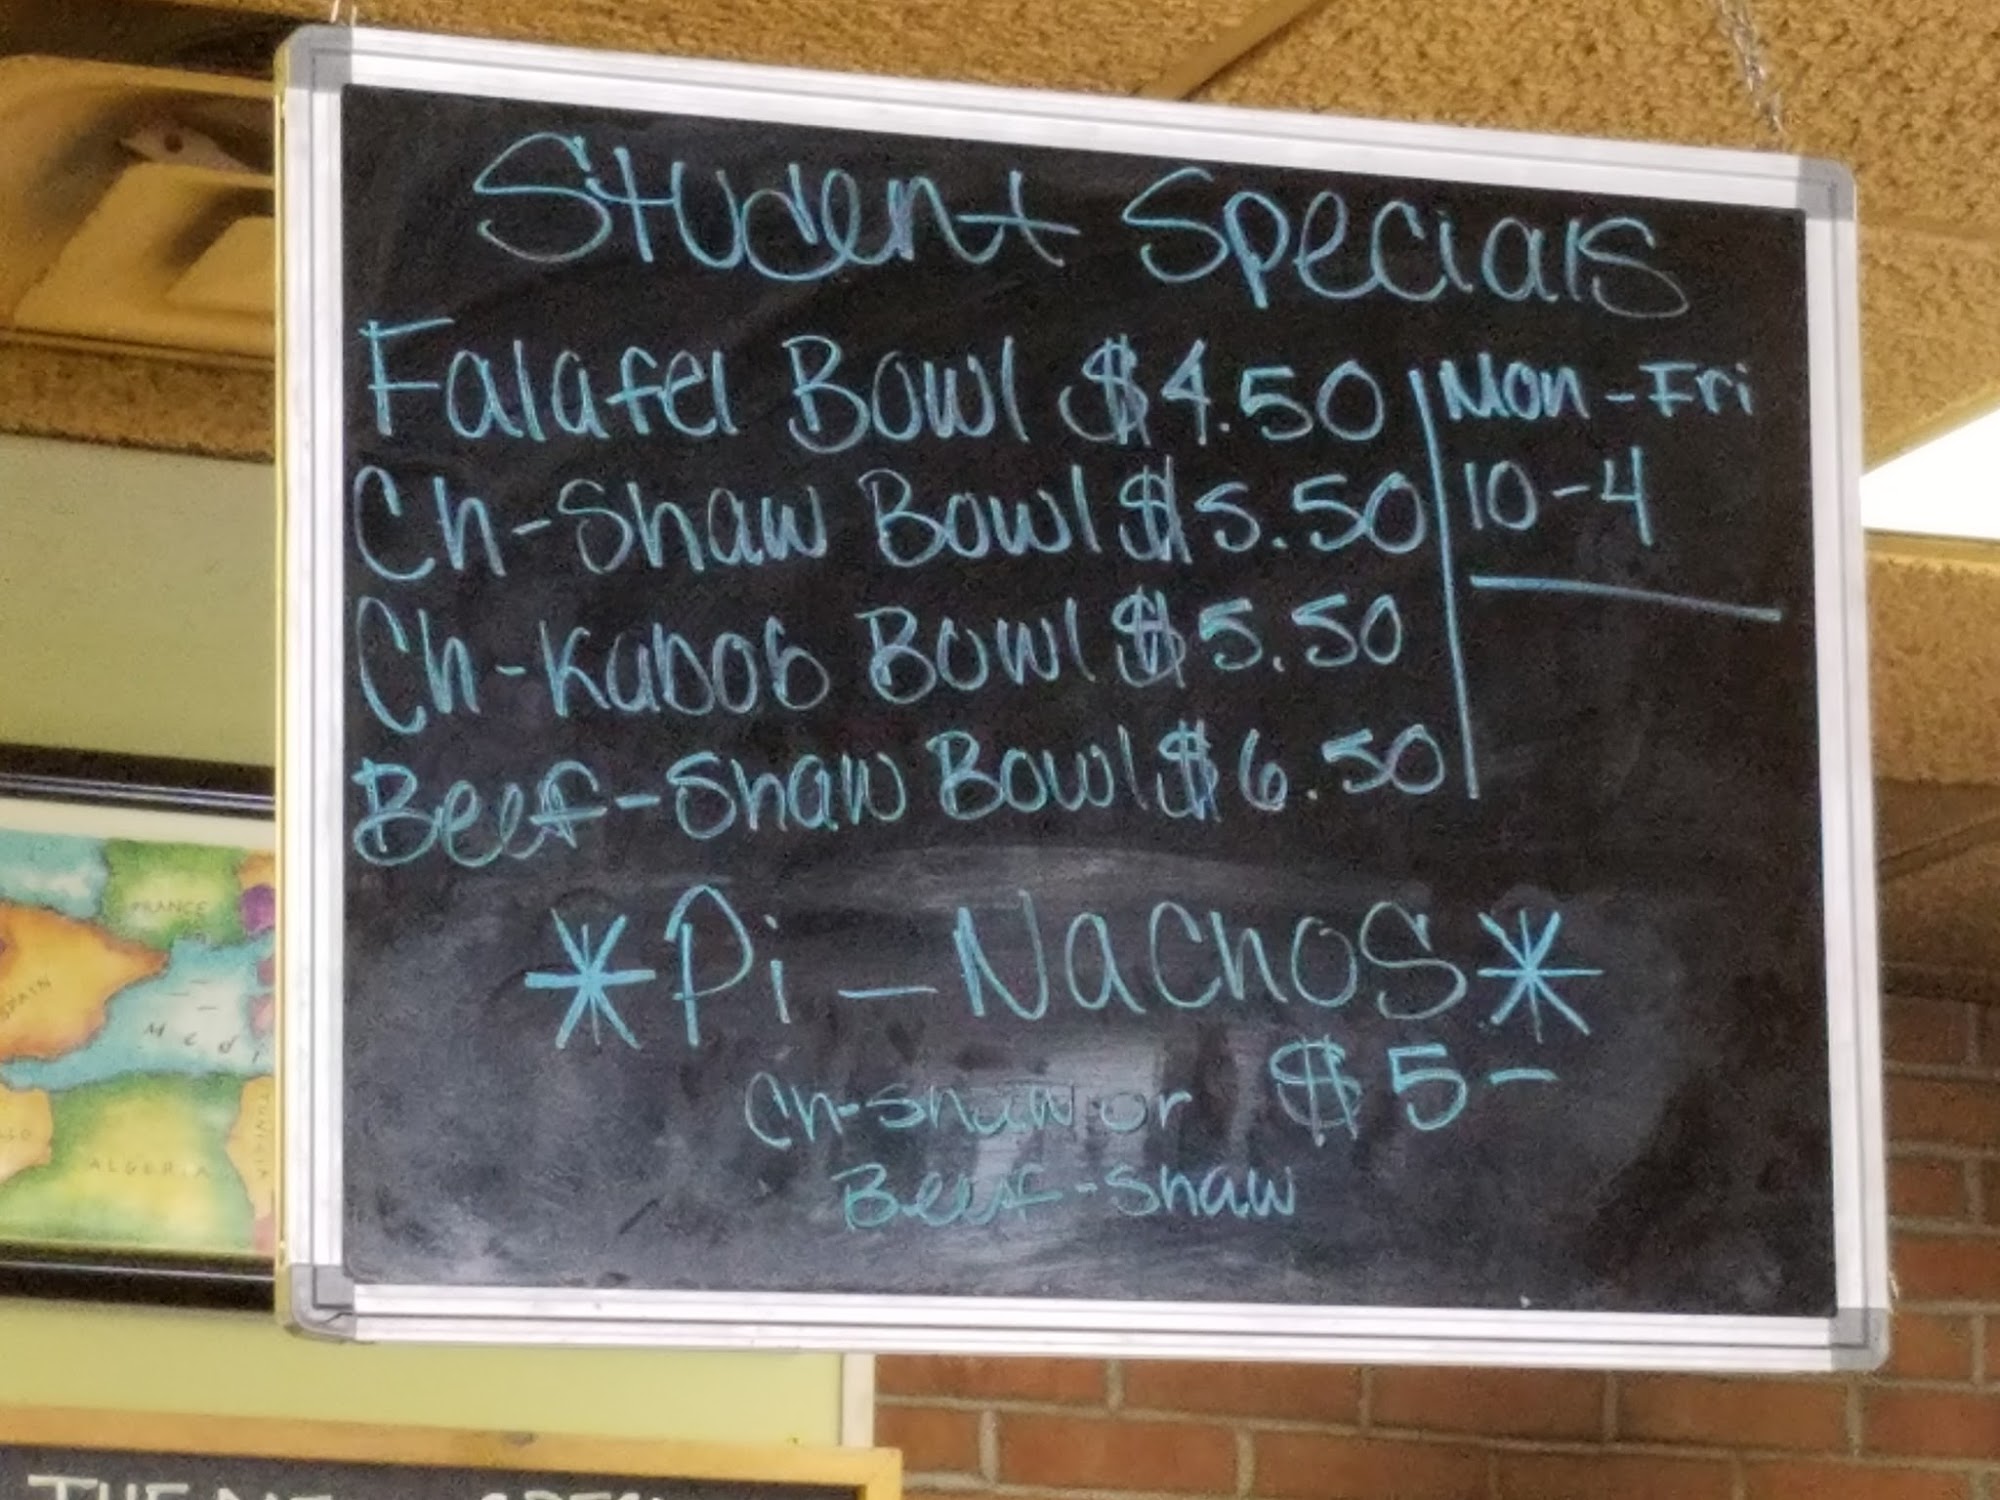 Student Specials
Falafel Bowl $4.50
Ch-Shaw Bowl $5.50
Ch-Kabob Bowl $5.50
Beef-Shaw Bowl $6.50
Mon-Fri
10-4
*Pi-Nachos*
$5-
Ch-shaw or
Beef-shaw
FRANCE
SPAIN
Medi
ALGERIA
TUNISIA
THE